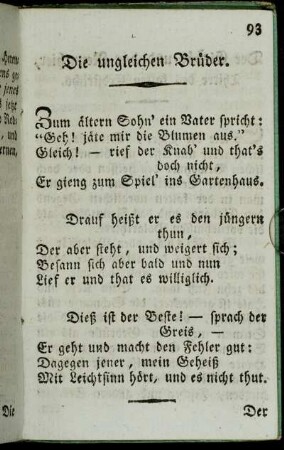 93
Die ungleichen Brüder.
Zum ältern Sohn' ein Vater spricht:
"Geh! jäte mir die Blumen aus."
Gleich! — rief der Knab' und that's
doch nicht,
Er gieng zum Spiel' ins Gartenhaus.
Drauf heißt er es den jüngern
thun,
Der aber steht, und weigert sich;
Besann sich aber bald und nun
Lief er und that es williglich.
Dieß ist der Beste! — sprach der
Greis, —
Er geht und macht den Fehler gut:
Dagegen jener, mein Geheiß
Mit Leichtsinn hört, und es nicht thut.
Die
Der